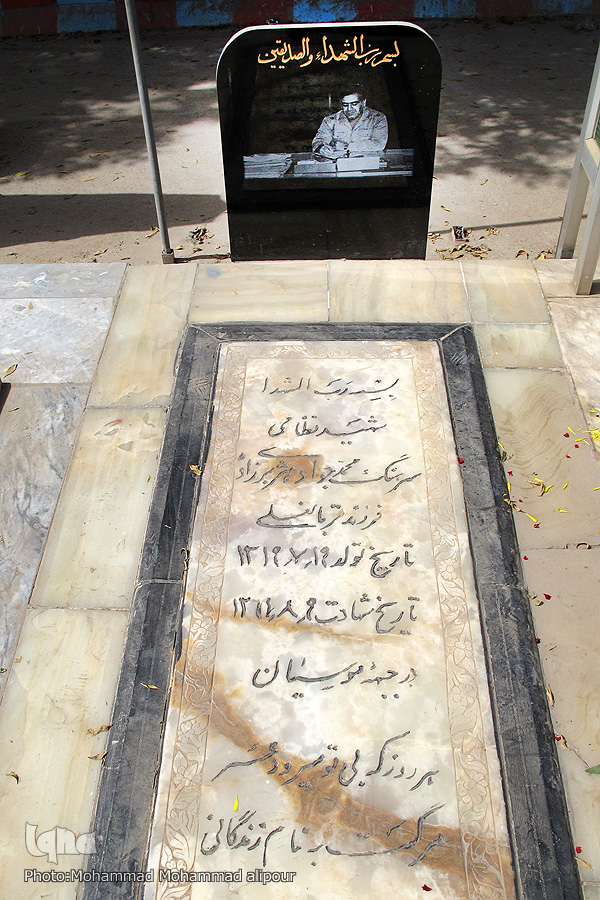 بسم رب الشهداء والصدیقین
بسم رب الشهدا
شهید نظامی
سرهنگ محمد جوادی هژبرزاد
فرزند قربانعلی
تاریخ تولد ۱۳۱۹٫۷٫۱۹
تاریخ شهادت ۱۳۶۱٫۸٫۹
در جبهه موسیان
هر روز که بی تو میرود عمر
مرگست بنام زندگانی
iqna
Photo:Mohammad Mohammad alipour